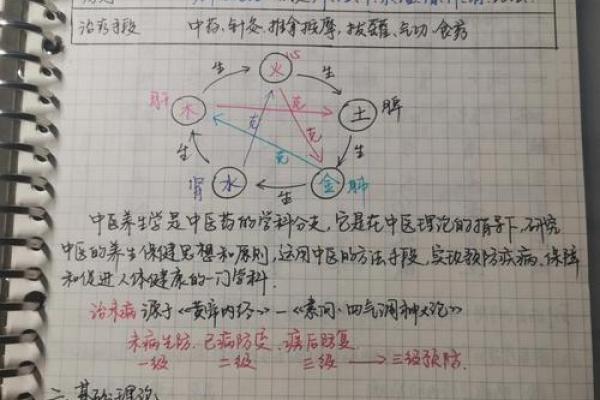 治疗手段 中药、针灸、推拿按摩、拔罐、气功、食药
心
生 火 生
肝 木 克 土 脾
克 克
生 克 生
肾 水 生 金 肺
中医养生学是中医药的学科分支,它是在中医理论的指导下,研究
中医的养生保健思想和原则,运用中医的方法手段,实现预防疾病、保障
和促进人体健康的一门学科.
治未病 源于《黄帝内经》—《素问·四气调神大论》
未病先防、已病防变、瘥后防复
一级 二级 三级 → 三级预防.
二、基础理论